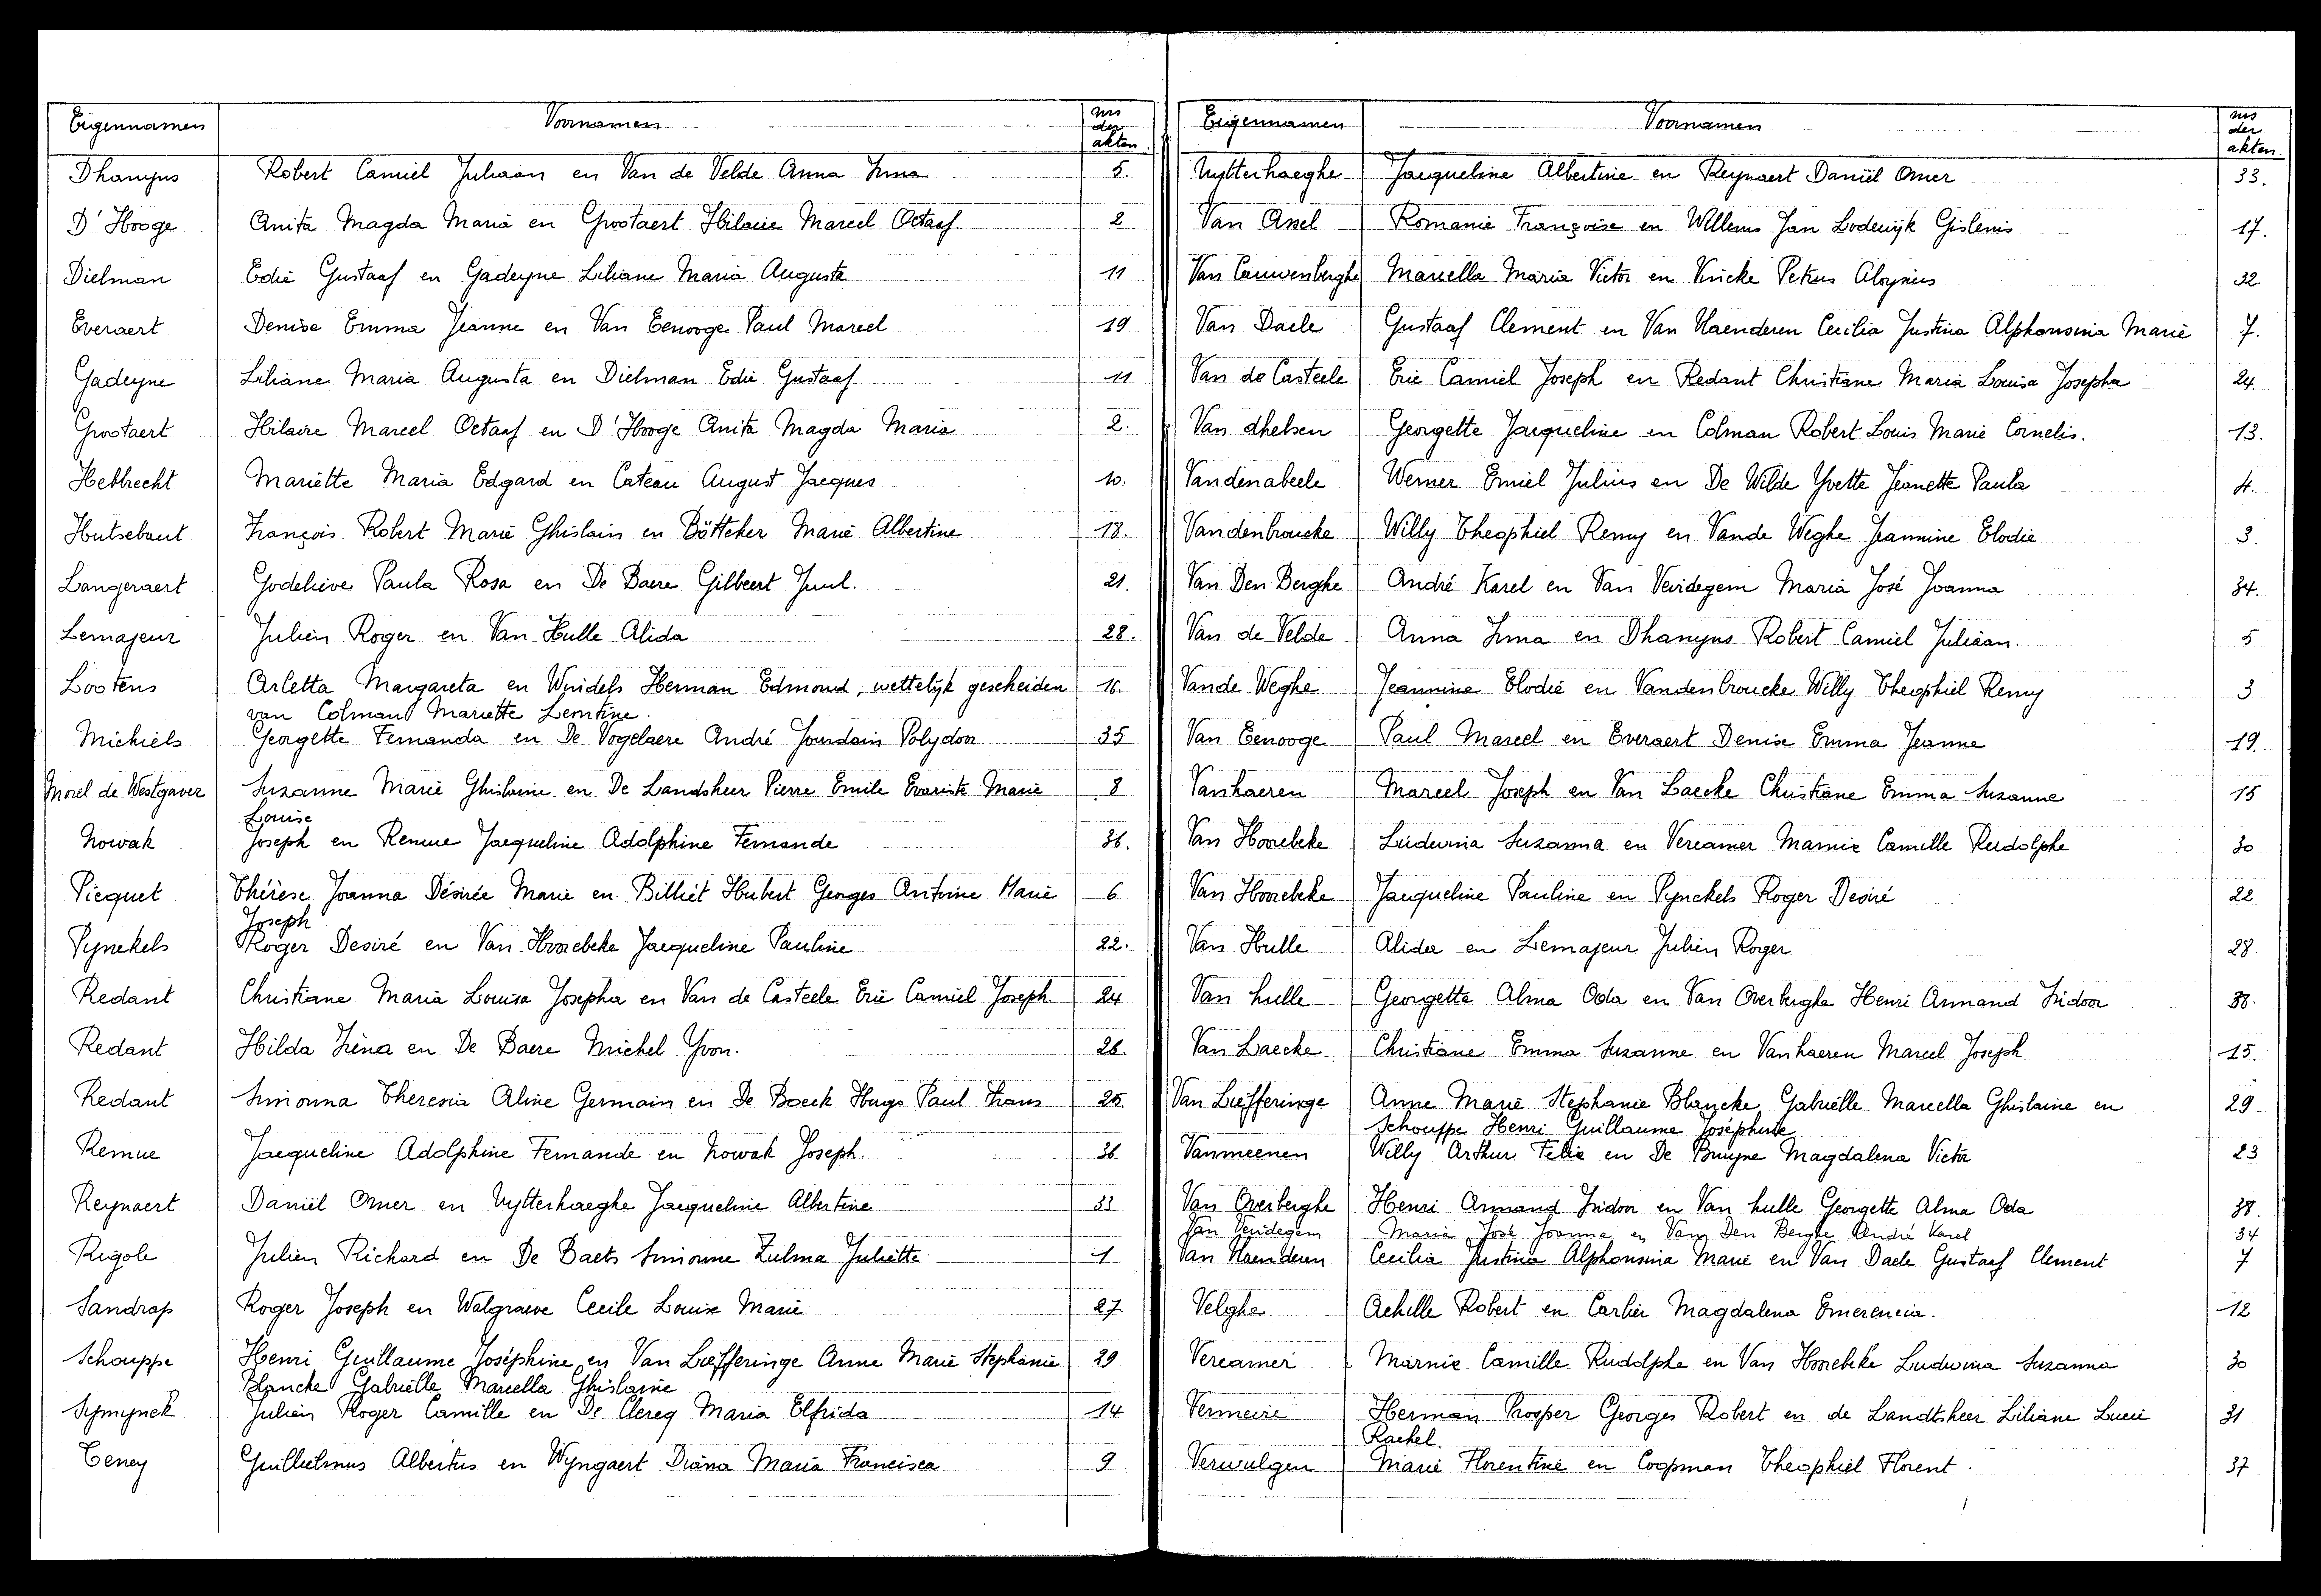 Eigennamen Voornamen Nrs der akten
Dhamyns Robert Camiel Juliaan en Van de Velde Anna Irma 5.
D'Hooge Anita Magda Maria en Grootaert Hilaire Marcel Octaaf 2
Dielman Edie Gustaaf en Gadeyne Liliane Maria Augusta 11
Everaert Denise Emma Jeanne en Van Eenooge Paul Marcel 19
Gadeyne Liliane Maria Augusta en Dielman Edie Gustaaf 11
Grootaert Hilaire Marcel Octaaf en D'Hooge Anita Magda Maria 2.
Hebbrecht Mariette Maria Edgard en Cateau August Jacques 10.
Hutsebaut François Robert Marie Ghislain en Bötteher Marie Albertine 18.
Langeraert Godelieve Paula Rosa en De Baere Gilbert Juul. 21.
Lemajeur Julien Roger en Van Hulle Alida 28.
Lootens Arletta Margareta en Windels Herman Edmond, wettelijk gescheiden 16.
van Colman Mariette Leontine.
Michiels Georgette Fernanda en De Vogelaere André Jourdain Polydoor 35
Morel de Westgaver Suzanne Marie Ghislaine en De Landsheer Pierre Emile Evariste Marie 8
Louise
Nowak Joseph en Remue Jacqueline Adolphine Fernande 36.
Picquet Thérèse Joanna Désirée Marie en Billiet Hubert Georges Antoine Marie 6
Joseph
Pynckels Roger Desiré en Van Hoorebeke Jacqueline Pauline 22.
Redant Christiane Maria Louisa Josepha en Van de Casteele Eric Camiel Joseph 24
Redant Hilda Irèna en De Baere Michel Yvon. 26.
Redant Simonna Theresia Aline Germain en De Boeck Hugo Paul Frans 25.
Remue Jacqueline Adolphine Fernande en Nowak Joseph. 36
Reynaert Daniël Omer en Uytterhaeghe Jacqueline Albertine 33
Rigole Julien Richard en De Baets Simonne Zulma Juliette 1
Sandrap Roger Joseph en Walgraeve Cecile Louise Marie 27
Schouppe Henri Guillaume Joséphine en Van Liefferinge Anne Marie Stephanie 29
Blanche Gabrielle Marcella Ghislaine
Symynck Julien Roger Camille en De Clercq Maria Elfrida 14
Teney Guillielmus Albertus en Wyngaert Diana Maria Francisca 9
Eigennamen Voornamen Nrs der akten.
Uytterhaeghe Jacqueline Albertine en Reynaert Daniël Omer 33.
Van Assel Romanie Françoise en Willems Jan Lodewijk Gislenis 17.
Van Cauwenberghe Marcella Maria Victor en Vricke Petrus Aloysius 32.
Van Daele Gustaaf Clement en Van Haenderen Cecilia Justina Alphonsina Marie 7.
Van de Casteele Eric Camiel Joseph en Redant Christiane Maria Louisa Josepha 24.
Van dhelsen Georgette Jacqueline en Colman Robert Louis Marie Cornelis. 13.
Vandenabeele Werner Emiel Julius en De Wilde Yvette Jeanette Paula 4.
Vandenbroucke Willy Theophiel Remy en Vande Weghe Jeannine Elodie 3.
Van Den Berghe André Karel en Van Verdegem Maria José Joanna 34.
Van de Velde Anna Irma en Dhamyns Robert Camiel Juliaan. 5
Vande Weghe Jeannine Elodie en Vandenbroucke Willy Theophiel Remy 3
Van Eenooge Paul Marcel en Everaert Denise Emma Jeanne 19.
Vanhaeren Marcel Joseph en Van Laecke Christiane Emma Suzanne 15
Van Hoorebeke Ludwina Suzanna en Vercamer Marnix Camille Rudolphe 30
Van Hoorebeke Jacqueline Pauline en Pynckels Roger Desiré 22
Van Hulle Alida en Lemajeur Julien Roger 28.
Van hulle Georgette Alma Oda en Van Overberghe Henri Armand Isidoor 38.
Van Laecke Christiane Emma Suzanne en Vanhaeren Marcel Joseph 15.
Van Liefferinge Anne Marie Stephanie Blancke Gabrielle Marcella Ghislaine en 29
Schouppe Henri Guillaume Joséphine
Vanmeenen Willy Arthur Felix en De Bruyne Magdalena Victor 23
Van Overberghe Henri Armand Isidoor en Van hulle Georgette Alma Oda 38.
Van Verdegem Maria José Joanna en Van Den Berghe André Karel 34
Van Haenderen Cecilia Justina Alphonsina Marie en Van Daele Gustaaf Clement 7
Velghe Achille Robert en Carlier Magdalena Emerencia. 12
Vercamer Marnix Camille Rudolphe en Van Hoorebeke Ludwina Suzanna 30
Vermeire Herman Prosper Georges Robert en de Landtsheer Liliane Lucie 31
Rachel.
Verwulgen Marie Florentine en Coopman Theophiel Florent. 37